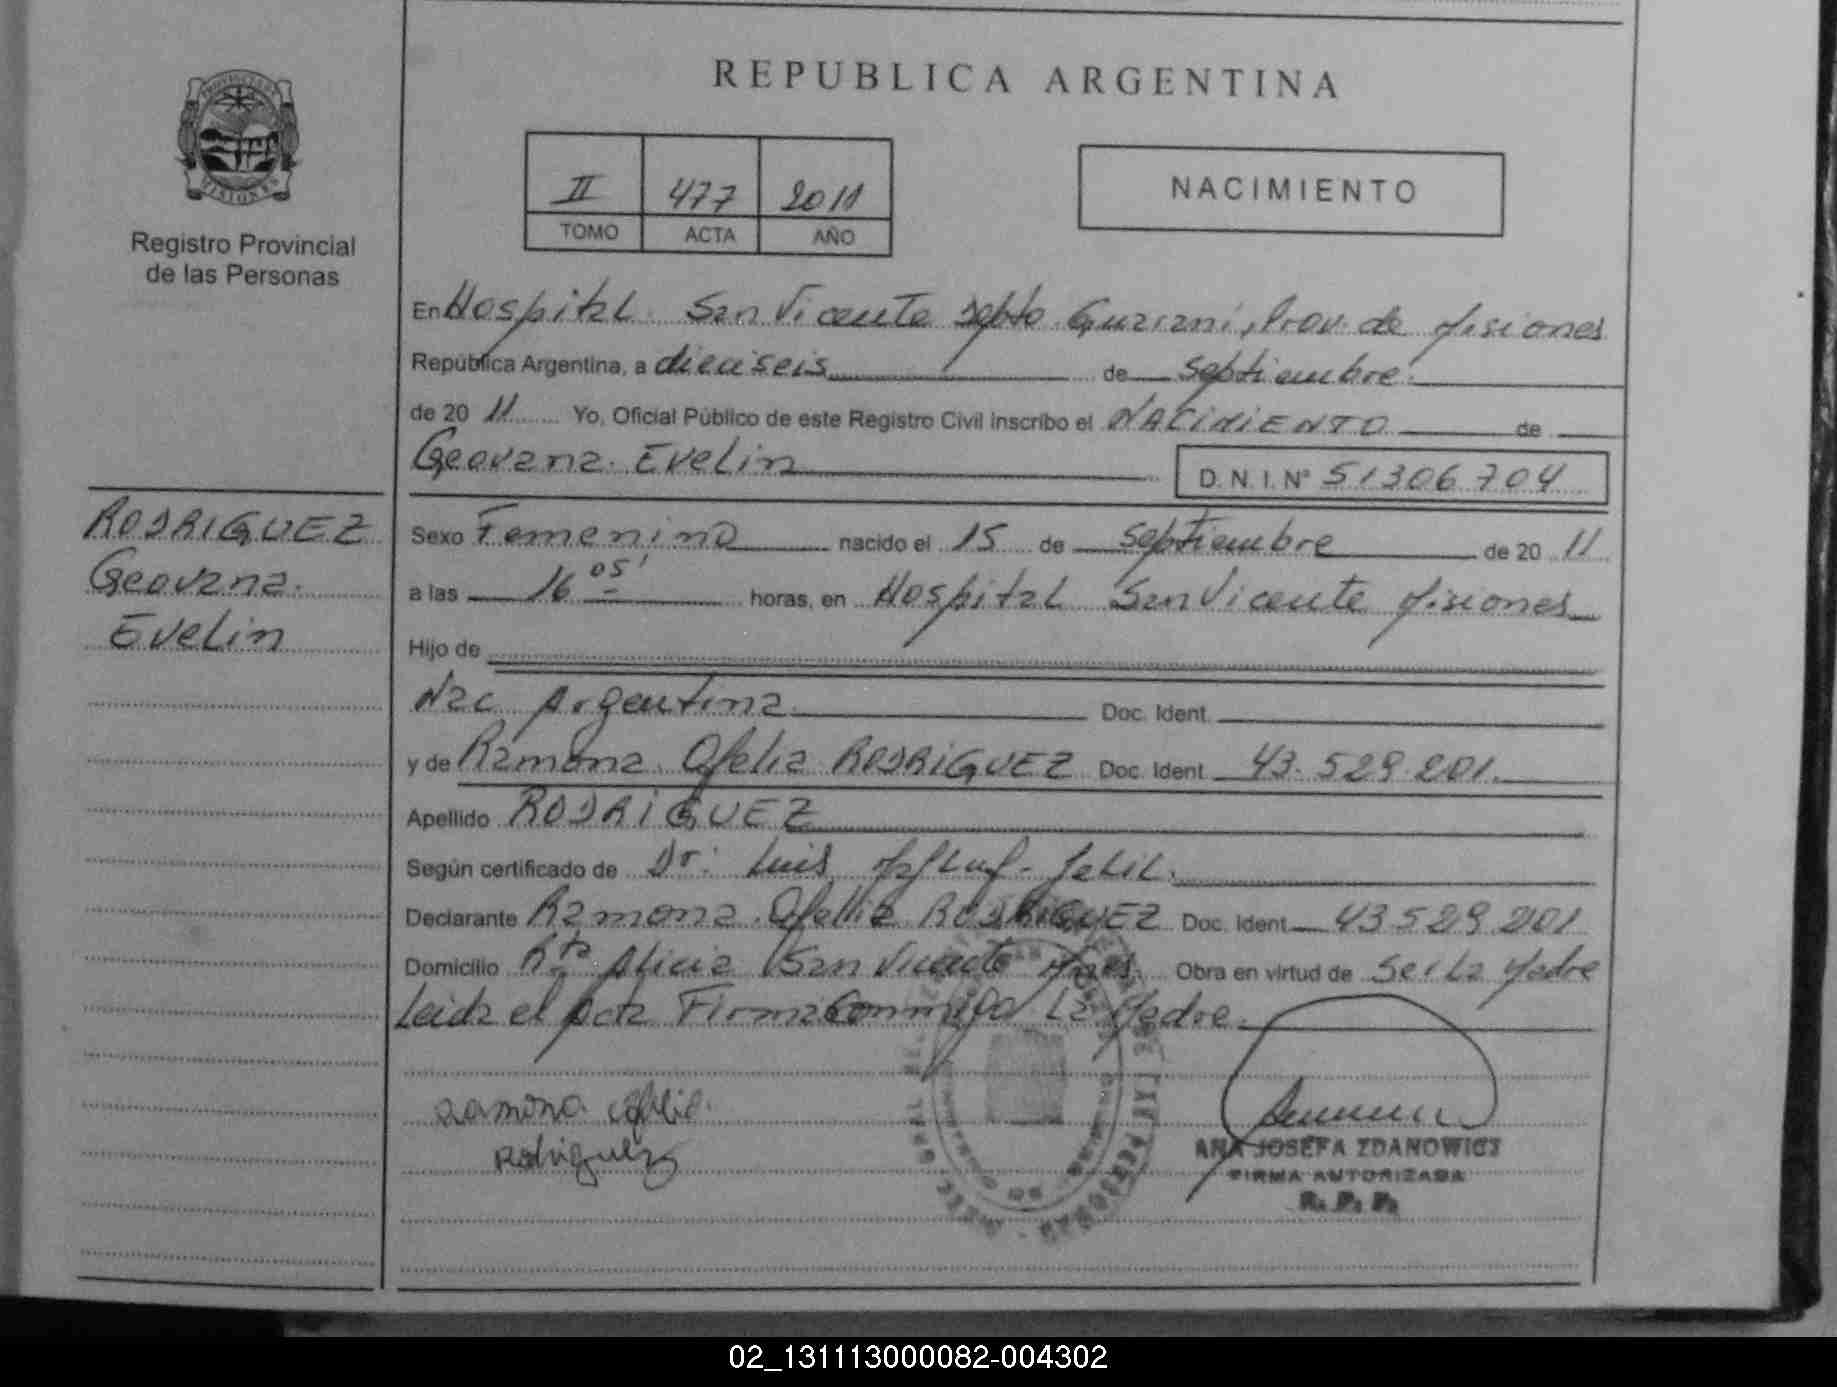 REPUBLICA ARGENTINA
II 477 2011
TOMO ACTA AÑO
NACIMIENTO
PROVINCIA DE
MISIONES
Registro Provincial
de las Personas
En Hospital San Vicente Depto Guarani, Prov. de Misiones
República Argentina, a dieciseis de septiembre
de 20 11 Yo, Oficial Público de este Registro Civil inscribo el NACIMIENTO de
Geovana Evelin D.N.I. Nº 51306704
RODRIGUEZ
Geovana
Evelin
Sexo Femenino nacido el 15 de septiembre de 20 11
a las 16 05' horas, en Hospital San Vicente Misiones
Hijo de
Nac Argentina Doc. Ident.
y de Ramona Ofelia RODRIGUEZ Doc. Ident 43.529.201.
Apellido RODRIGUEZ
Según certificado de Dr. Luis
Declarante Ramona Ofelia RODRIGUEZ Doc. Ident 43.529.201
Domicilio Rta Alicia San Vicente Mnes. Obra en virtud de Ser La Madre
Leida el Acta Firma Conmigo La Madre.
Ramona Ofelia
Rodriguez
ANA JOSEFA ZDANOWICZ
FIRMA AUTORIZADA
R. P. P.
02_131113000082-004302